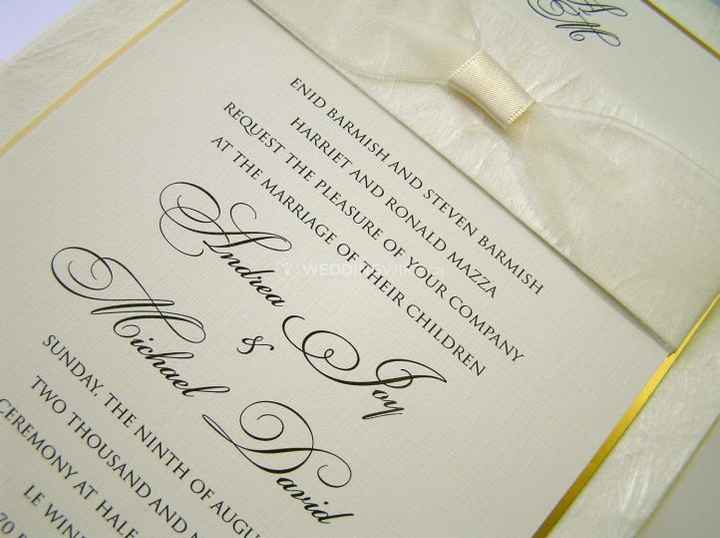 A
M
ENID BARMISH AND STEVEN BARMISH
HARRIET AND RONALD MAZZA
REQUEST THE PLEASURE OF YOUR COMPANY
AT THE MARRIAGE OF THEIR CHILDREN
Andrea Joy
&
Michael David
SUNDAY, THE NINTH OF AUGU
TWO THOUSAND AND N
CEREMONY AT HALF
LE WIN